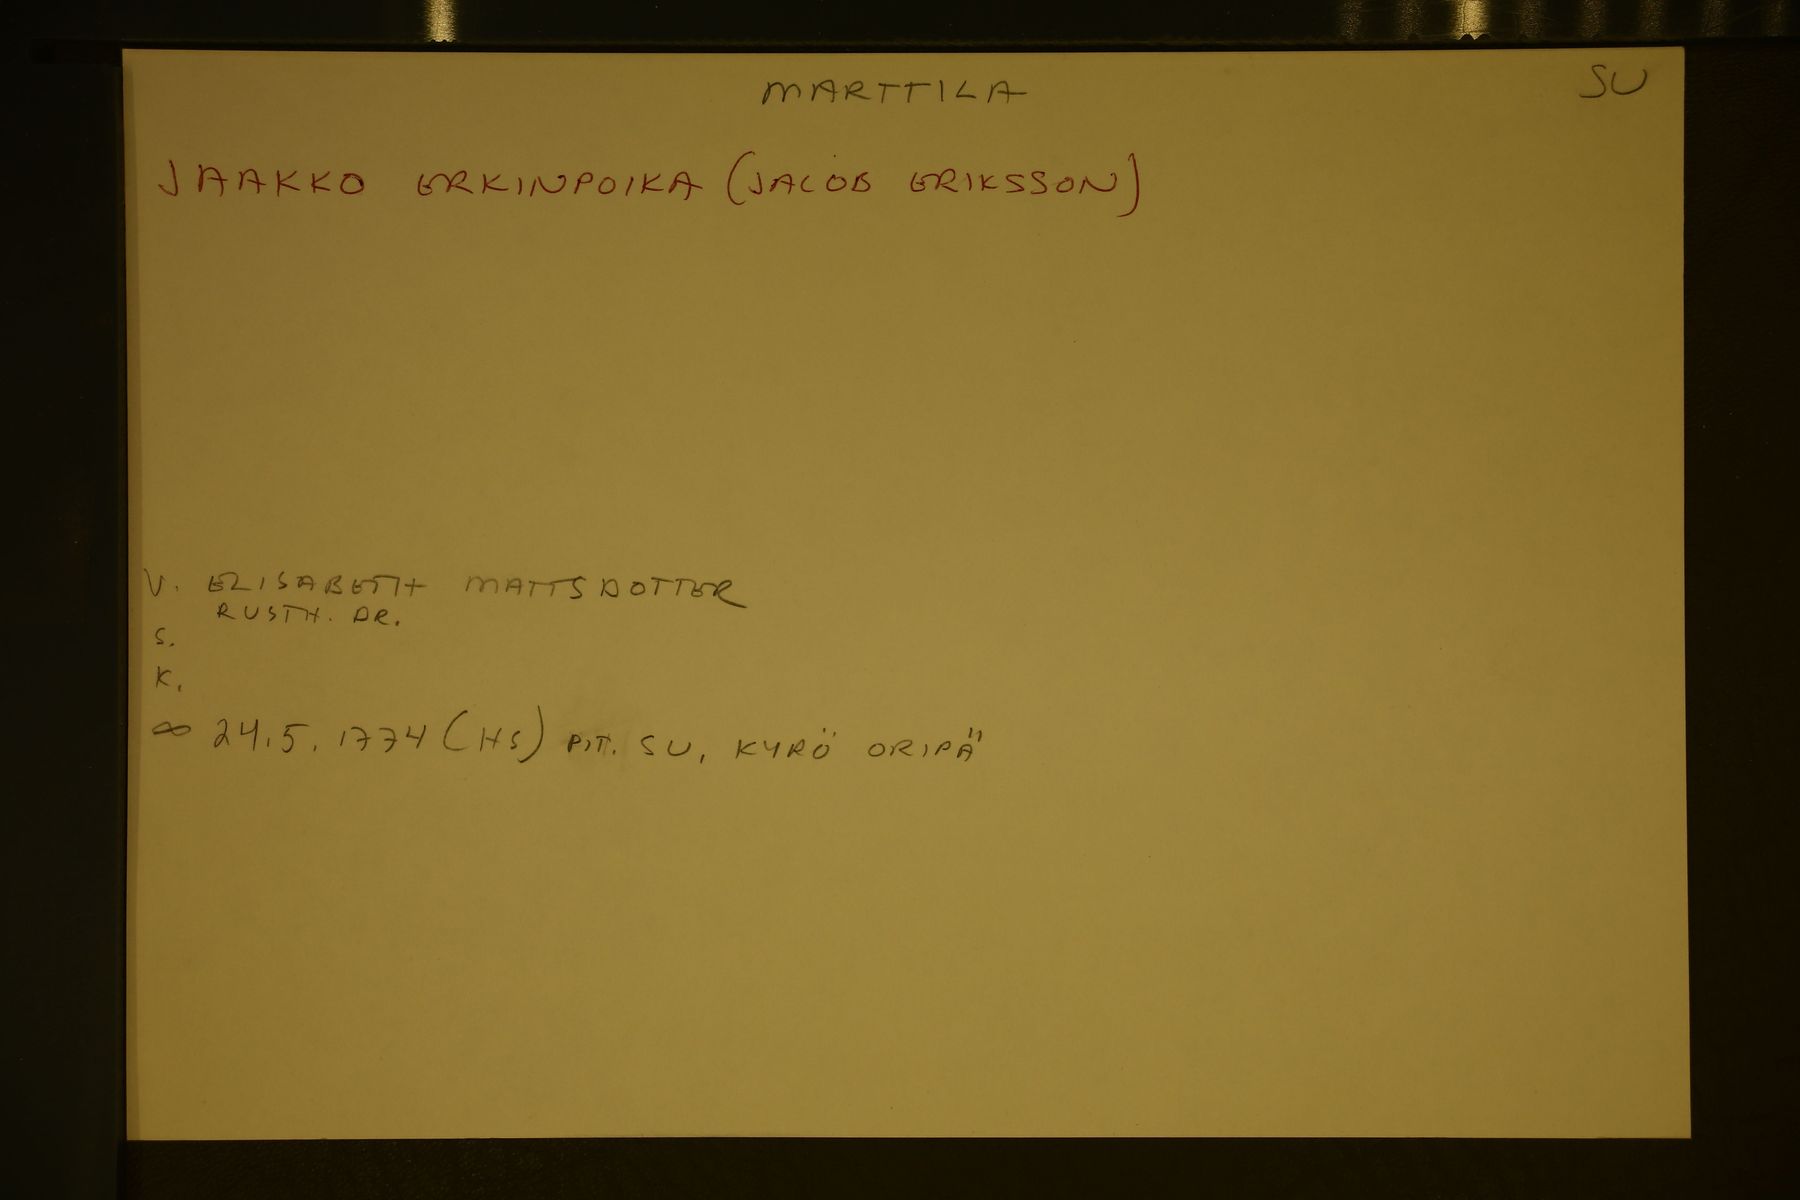 MARTTILA
SU
JAAKKO ERKINPOIKA (JACOB ERIKSSON)
V. ELISABETH MATTSDOTTER
RUSTH. DR.
S.
K.
∞ 24.5.1774 (HS) PIT. SU, KYRÖ ORIPÄ